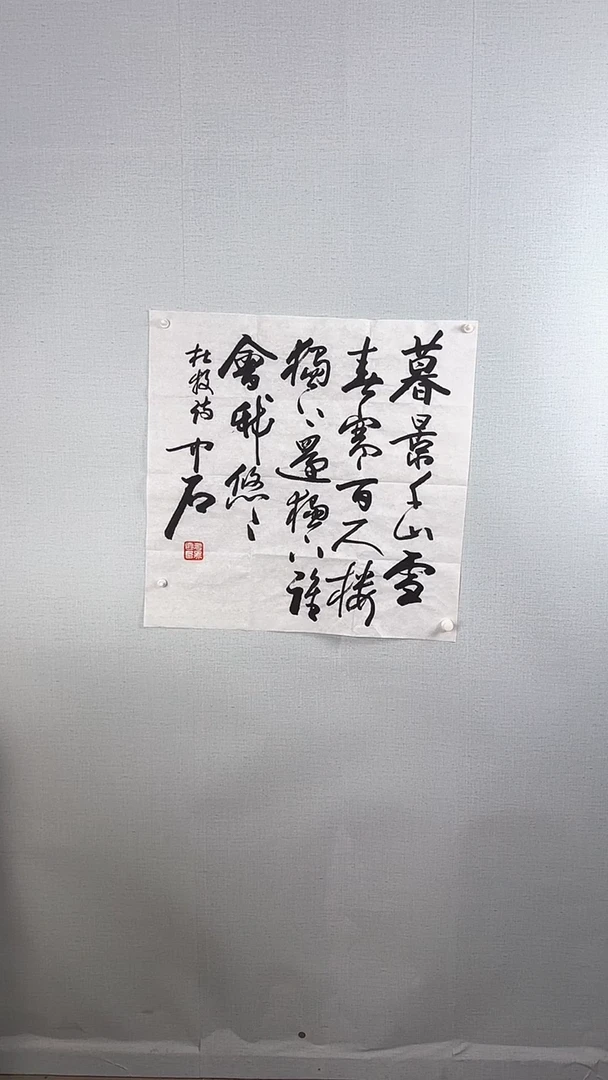 暮景千山雪
春寒百尺楼
獨上還獨下誰
會我悠々
杜牧詩 中石